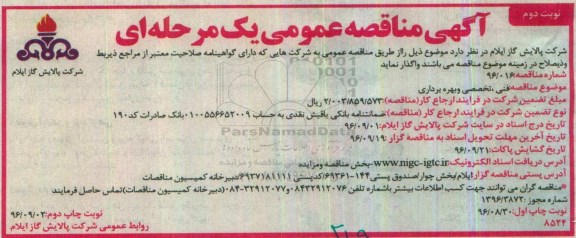 نوبت دوم
آگهی مناقصه عمومی یک مرحله ای
شرکت پالایش گاز ایلام
شرکت پالایش گاز ایلام در نظر دارد موضوع ذیل رااز طریق مناقصه عمومی به شرکت هایی که دارای گواهینامه صلاحیت معتبر از مراجع ذیربط
وذیصلاح در زمینه موضوع مناقصه می باشند واگذار نماید
شماره مناقصه: ۹۶/۰۱۶
موضوع مناقصه: فنی ،تخصصی وبهره برداری
مبلغ تضمین شرکت در فرایند ارجاع کار (مناقصه): ۲/۰۰۳/۸۵۹/۵۷۳ ریال
نوع تضمین شرکت در فرایند ارجاع کار (مناقصه): ضمانتنامه بانکی یافیش نقدی به حساب ۰۱۰۰۵۵۶۶۵۲۰۰۹ بانک صادرات کد۱۹۰
تاریخ درج اسناد در سایت شرکت پالایش گاز ایلام: ۹۶/۰۹/۰۱
تاریخ آخرین مهلت تحویل اسناد به مناقصه گزار :۹۶/۰۹/۱۹
تاریخ گشایش پاکات: ۹۶/۰۹/۲۱
آدرس دریافت اسناد الکترونیک: www.nigc-igtc.ir -بخش مناقصه ومزایده
آدرس پستی مناقصه گزار: ایلام/بخش چوار/صندوق پستی ۱۴۴-۶۹۳۶۱/کدپستی ۶۹۳۷۱۸۱۱۱۱(دبیرخانه کمیسیون مناقصات)
*مناقصه گران می توانند جهت کسب اطلاعات بیشتر باشماره تلفن ۰۸۴۳۲۹۱۲۰۷۶و۰۸۴-۳۲۹۱۲۰۷۷(دبیرخانه کمیسیون مناقصات)تماس حاصل فرمایند
شماره مجوز :۱۳۹۶/۳۸۷۲
نوبت چاپ اول: ۹۶/۰۸/۳۰
نوبت چاپ دوم: ۹۶/۰۹/۰۲
۸۵۲۴
روابط عمومی شرکت پالایش گاز ایلام
ParsNamadData